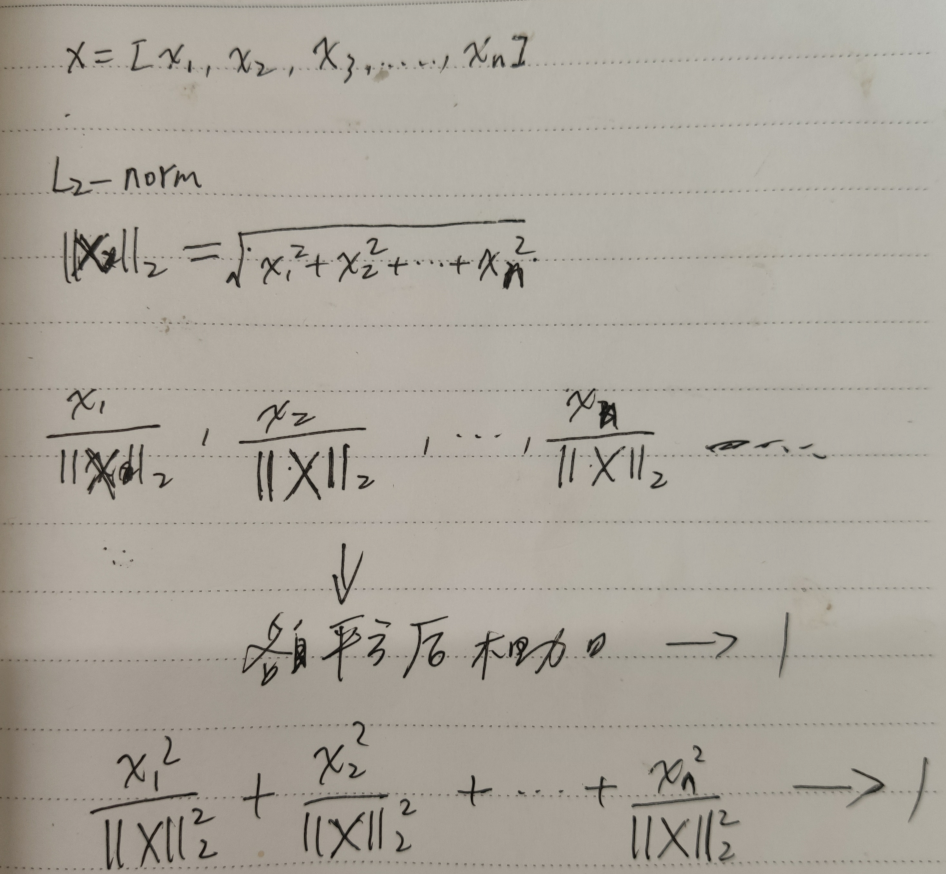 X = [x₁, x₂, x₃, ……, xₙ]
L₂-norm
||X||₂ = √(x₁² + x₂² + … + xₙ²)
x₁/||X||₂ , x₂/||X||₂ , …, xₙ/||X||₂
↓
各自平方后相加 → 1
x₁²/||X||₂² + x₂²/||X||₂² + … + xₙ²/||X||₂² → 1